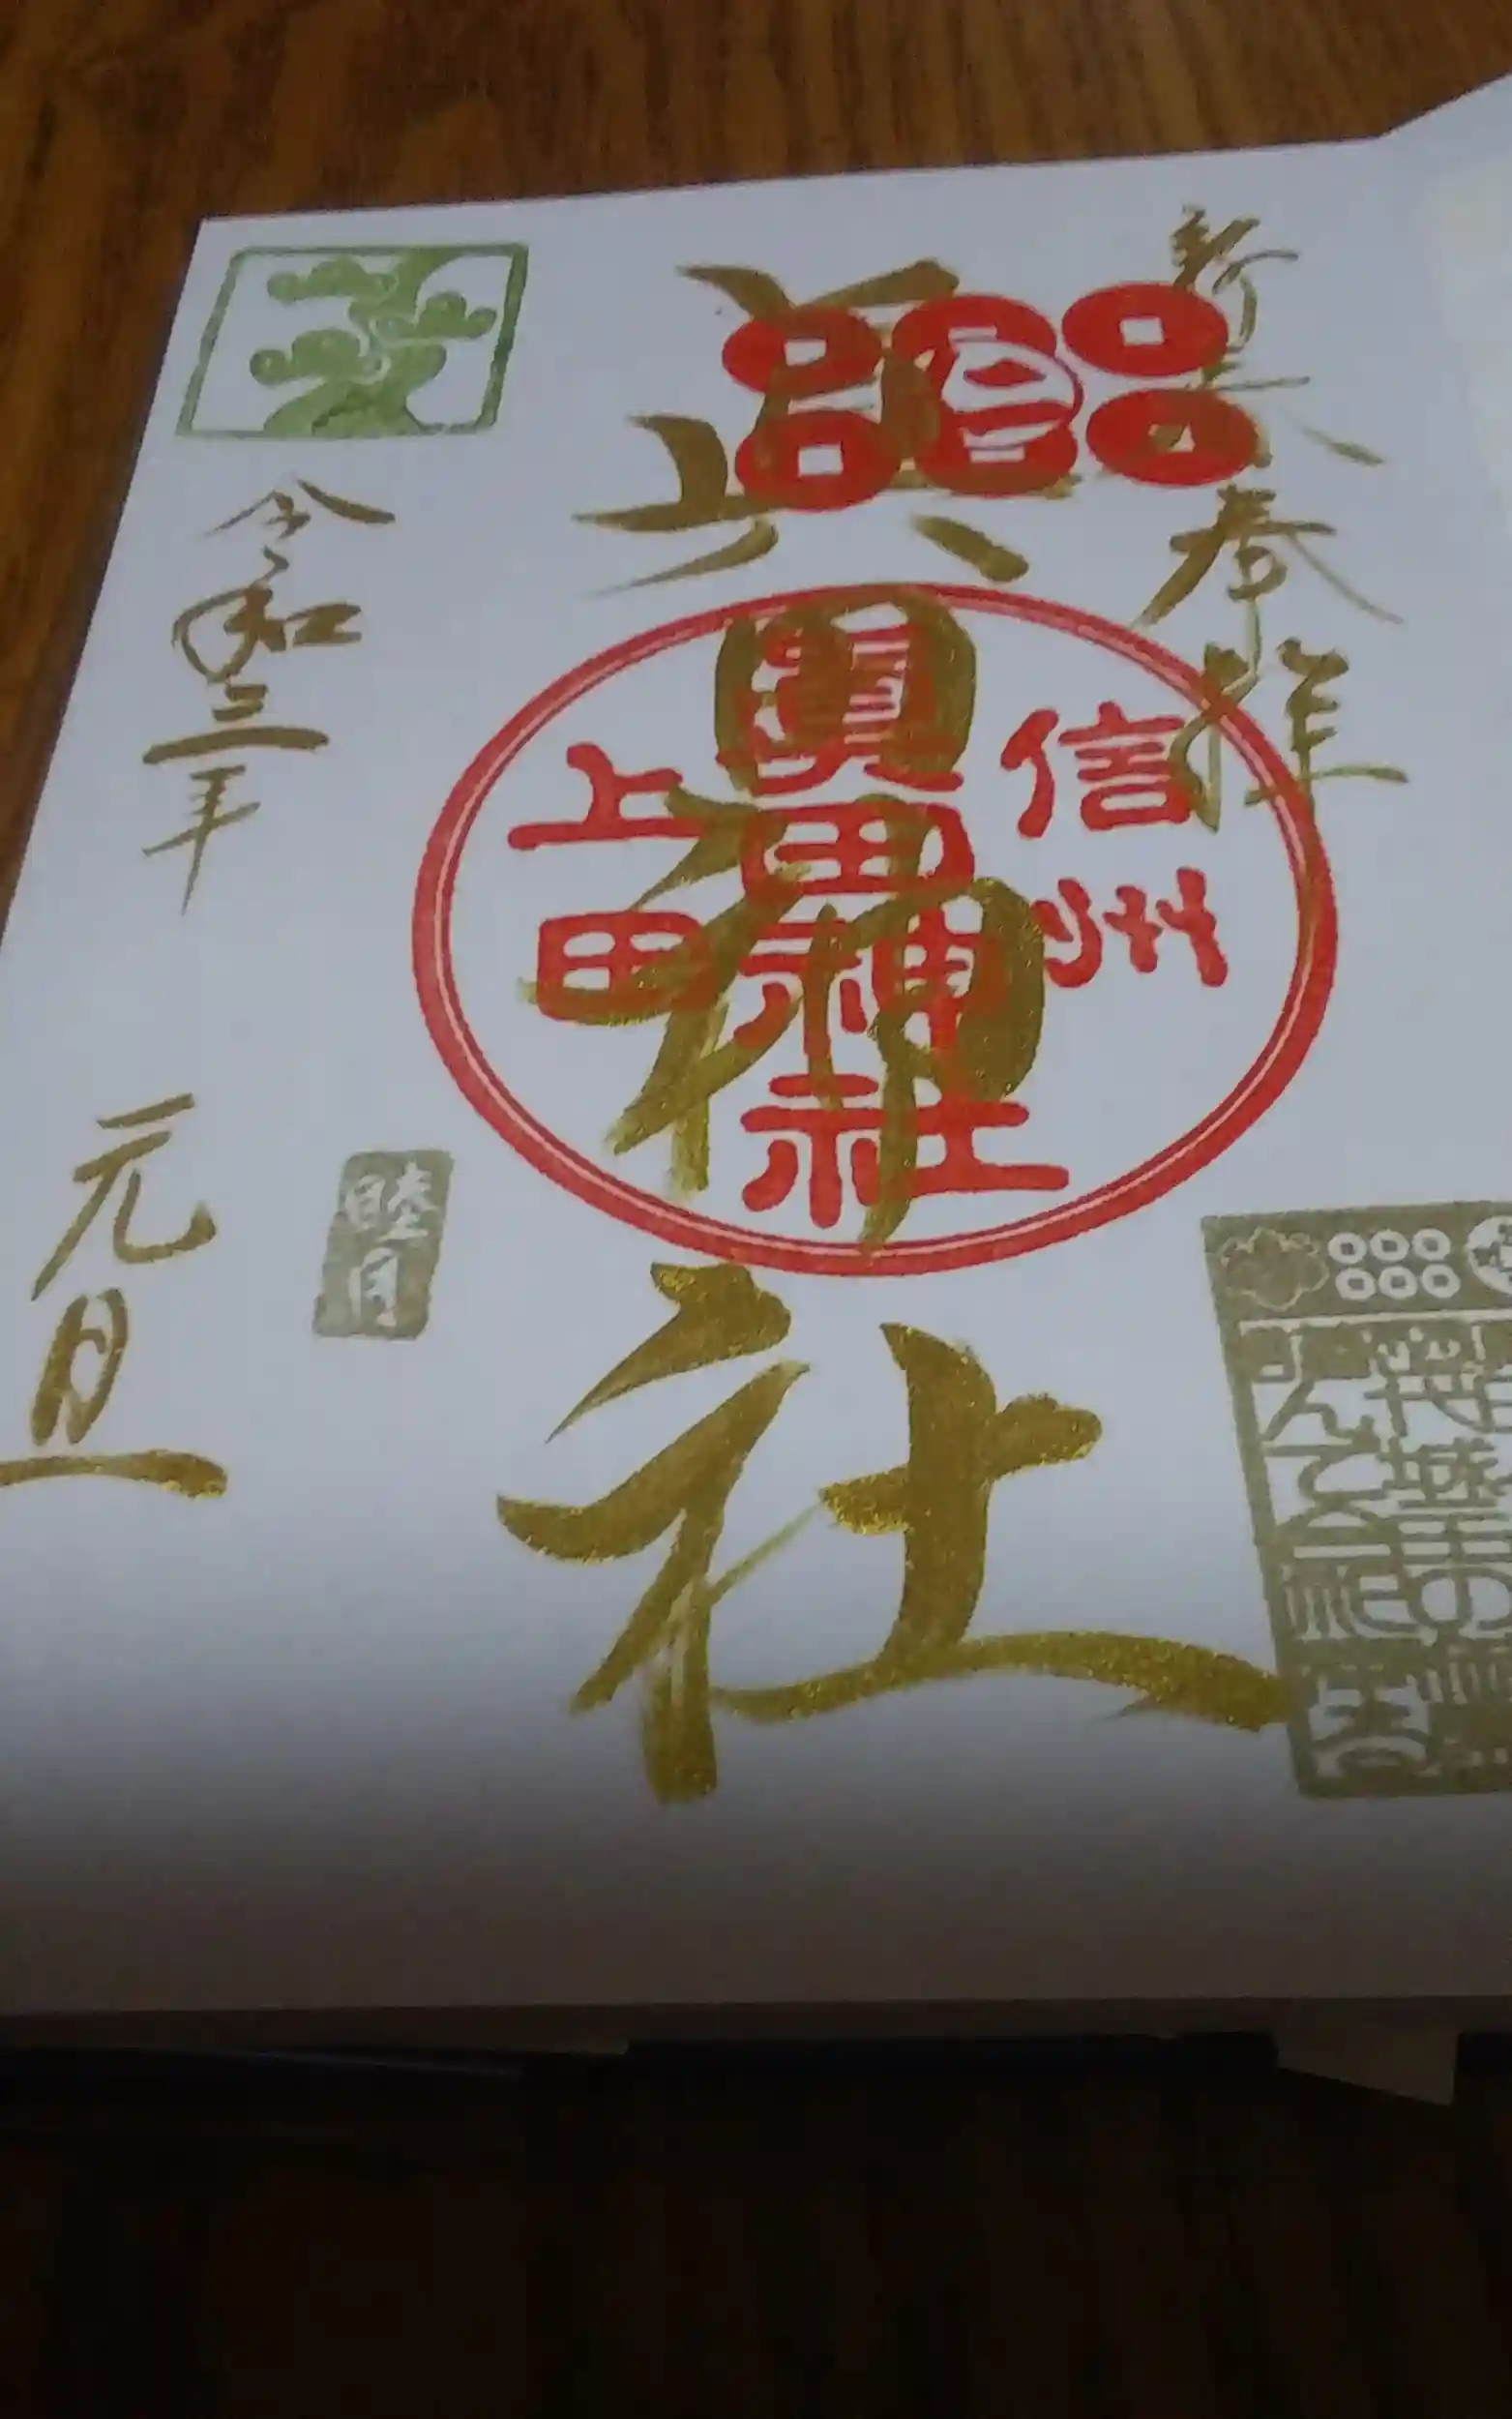 新春奉拝
眞田神社
信州
眞田神社
上田
令和三年
元旦
睦月